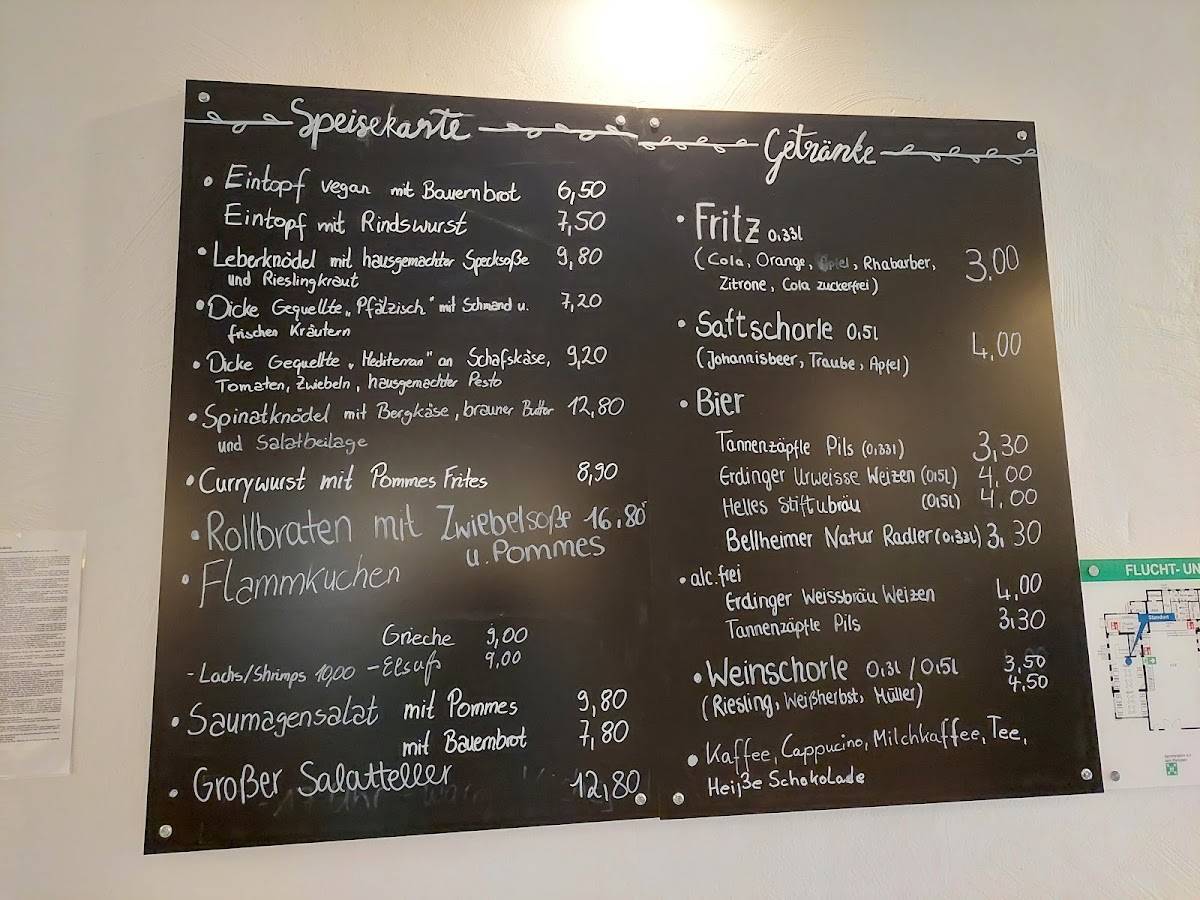 Speisekarte
• Eintopf vegan mit Bauernbrot 6,50
Eintopf mit Rindswurst 7,50
• Leberknödel mit hausgemachter Specksoße 9,80
und Rieslingkraut
• Dicke Gequellte „Pfälzisch" mit Schmand u. 7,20
frischen Kräutern
• Dicke Gequellte „Mediterran" an Schafskäse, 9,20
Tomaten, Zwiebeln, hausgemachter Pesto
• Spinatknödel mit Bergkäse, brauner Butter 12,80
und Salatbeilage
• Currywurst mit Pommes Frites 8,90
• Rollbraten mit Zwiebelsoße 16,80
u. Pommes
• Flammkuchen
Grieche 9,00
- Lachs/Shrimps 10,00 - Elsaß 9,00
• Saumagensalat mit Pommes 9,80
mit Bauernbrot 7,80
• Großer Salatteller 12,80
Getränke
• Fritz 0,33l
(Cola, Orange, Apfel, Rhabarber, 3,00
Zitrone, Cola zuckerfrei)
• Saftschorle 0,5l 4,00
(Johannisbeer, Traube, Apfel)
• Bier
Tannenzäpfle Pils (0,33l) 3,30
Erdinger Urweisse Weizen (0,5l) 4,00
Helles Stiftsbräu (0,5l) 4,00
Bellheimer Natur Radler (0,33l) 3,30
• alc.frei
Erdinger Weissbräu Weizen 4,00
Tannenzäpfle Pils 3,30
• Weinschorle 0,3l / 0,5l 3,50
4,50
(Riesling, Weißherbst, Müller)
• Kaffee, Cappucino, Milchkaffee, Tee,
Heiße Schokolade
FLUCHT- UN
Standort